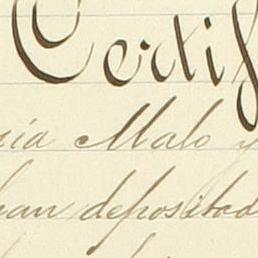 Certif
ria Malo y
han depositad